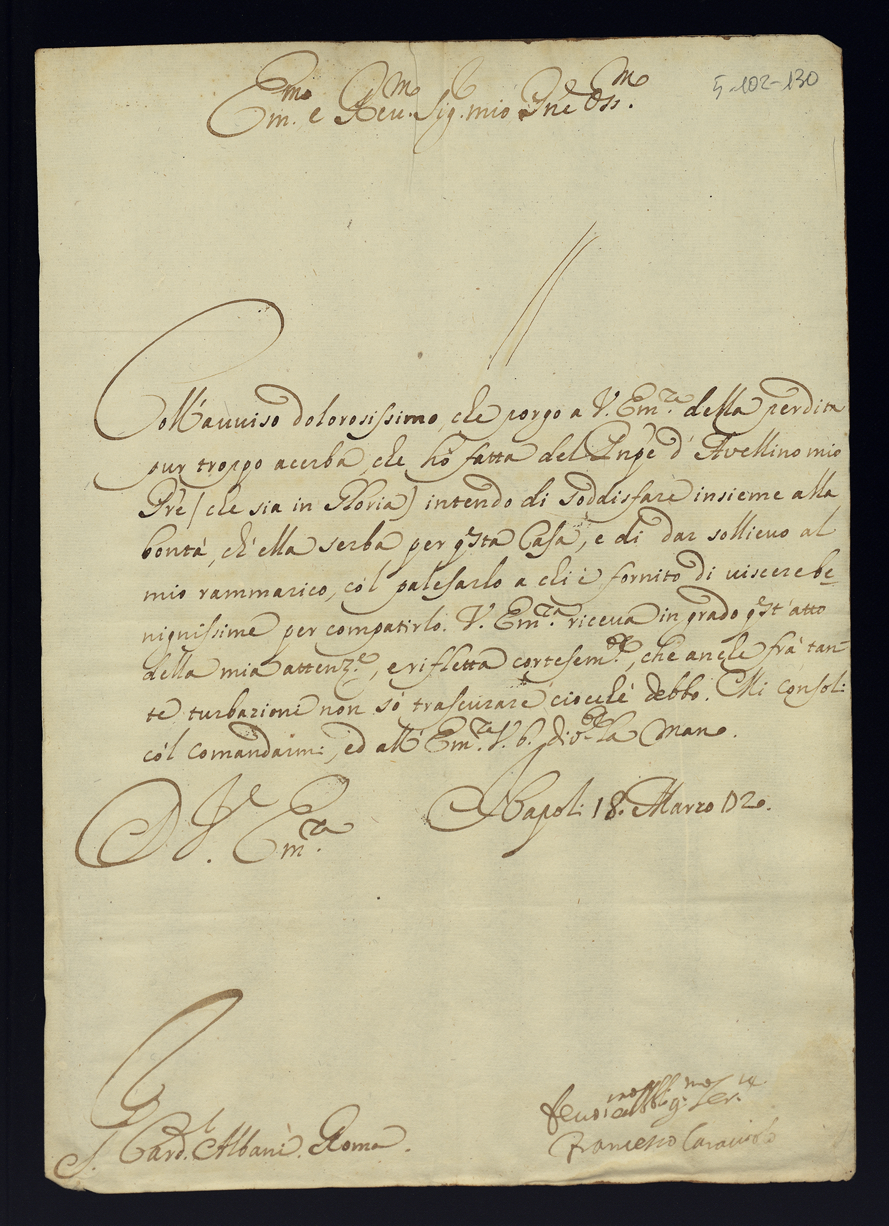 5-102-130
Em.mo e Reu.mo Sig.r mio P̃ne Oss.mo
Coll'auuiso dolorosissimo, che porgo a V. Em.za della perdita
pur troppo acerba, che hò fatta del Pn̄pe d'Avellino mio
Prē (che sia in Gloria) intendo di soddisfare insieme alla
bontà, ch'ella serba per qsta Casa, e di dar sollieuo al
mio rammarico, còl palesarlo a chi è fornito di uiscere be=
nignissime per compatirlo. V. Em.za riceua in grado qst'atto
della mia attenz.e, e rifletta cortesem.te, che anche frà tan=
te turbazioni non sò trascurare ciocchè debbo. Mi consoli
còl comandarmi, ed all'Em.za V. b. la mano.
D V. Em.za Napoli 18. Marzo 1720.
S. Card.l Albani. Roma.
Ser.re
Francesco Caracciolo